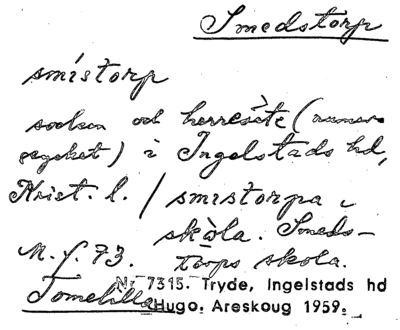 Smedstorp
smistorp
socken och herresäte (numera
) i Ingelstads hd,
Krist. l. / smistorpa i
skola. Smeds-
M. f. 73. torps skola.
Tomelilla
Nr 7315. Tryde, Ingelstads hd
Hugo Areskoug 1959.